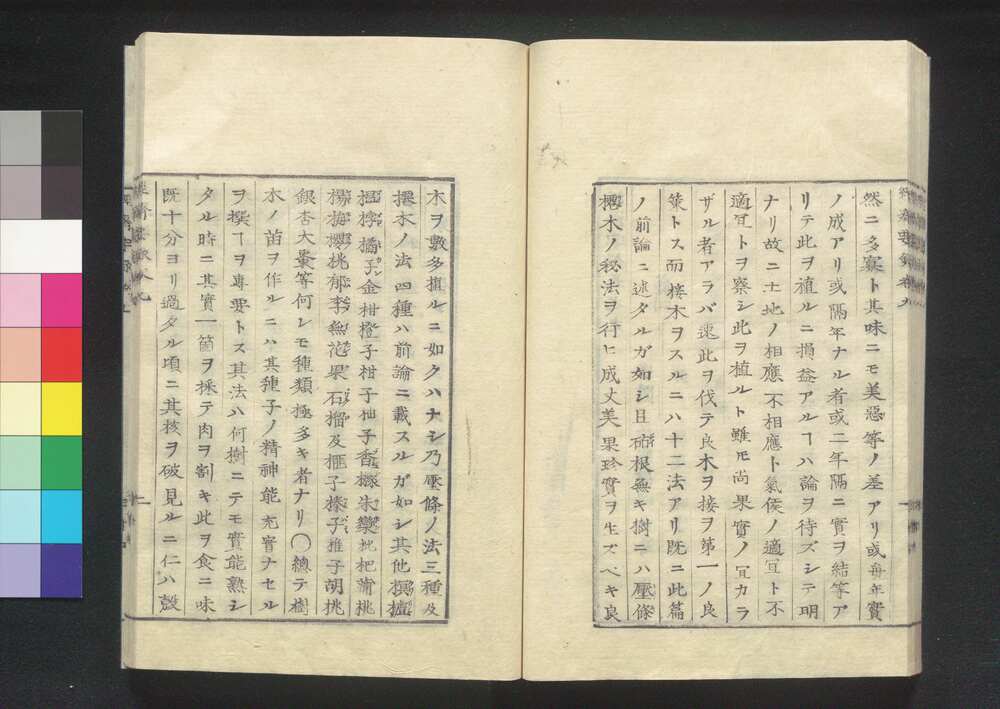 然ニ多寡ト其味ニモ美惡等ノ差アリ或毎年實
ノ成アリ或隔年ナル者或二年隔ニ實ヲ結等ア
リテ此ヲ殖ルニ損益アルヿハ論ヲ待ズシテ明
ナリ故ニ土地ノ相應不相應ト氣候ノ適冝ト不
適冝トヲ察シ此ヲ植ルト雖モ尚果實ノ冝カラ
ザル者アラバ速此ヲ伐テ良木ヲ接ヲ第一ノ良
策トス而接木ヲスルニハ十二法アリ既ニ此篇
ノ前論ニ述タルガ如シ且砧根無キ樹ニハ壓條
木ノ秘法ヲ行ヒ成丈美果珍實ヲ生ズベキ良
木ヲ數多植ルニ如クハナシ乃壓條ノ法三種及
木ノ法四種ハ前論ニ載スルガ如シ其他
橘子金柑橙子柑子仙子香橼朱欒枇杷蒲桃
楊梅櫻桃郁李無花果石榴及榧子榛子椎子胡桃
銀杏大棗等何レモ種類極多キ者ナリ〇總テ樹
木ノ苗ヲ作ルニハ其種子ノ精神能充實ナセル
ヲ撰ヿヲ專要トス其法ハ何樹ニテモ實能熟シ
タル時ニ其實一箇ヲ採テ肉ヲ割キ此ヲ食ニ味
既十分ヨリ過タル頃ニ其核ヲ破見ルニ仁ハ殼